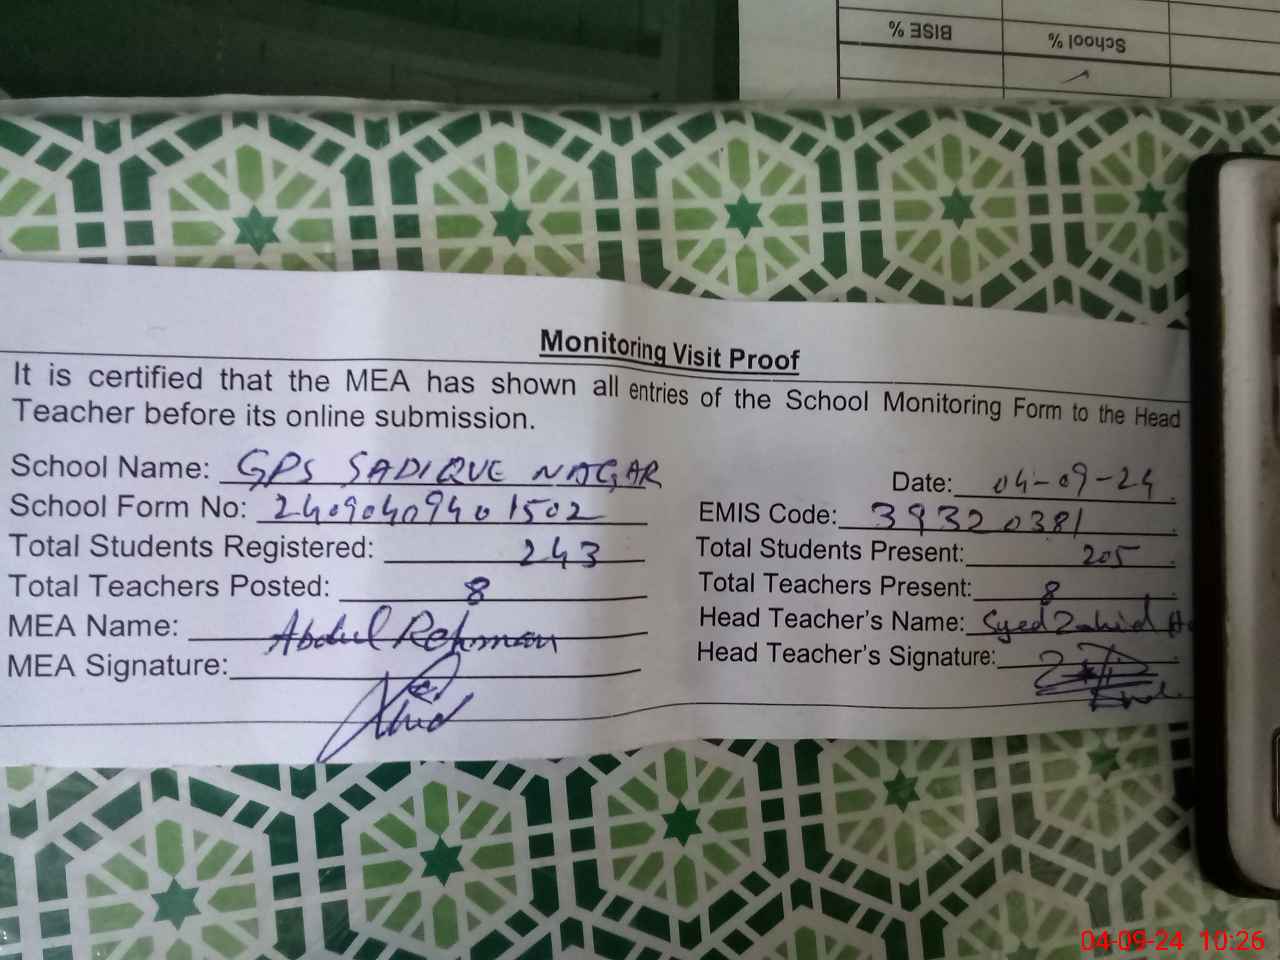 BISE %
School %
Monitoring Visit Proof
It is certified that the MEA has shown all entries of the School Monitoring Form to the Head
Teacher before its online submission.
School Name: GPS SADIQUE NAGAR
Date: 04-09-24
School Form No: 2409040940 1502
EMIS Code: 39320381
Total Students Registered: 243
Total Students Present: 205
Total Teachers Posted: 8
Total Teachers Present: 8
MEA Name: Abdul Rehman
Head Teacher's Name: Syed Zahid
MEA Signature:
Head Teacher's Signature:
04-09-24 10:26